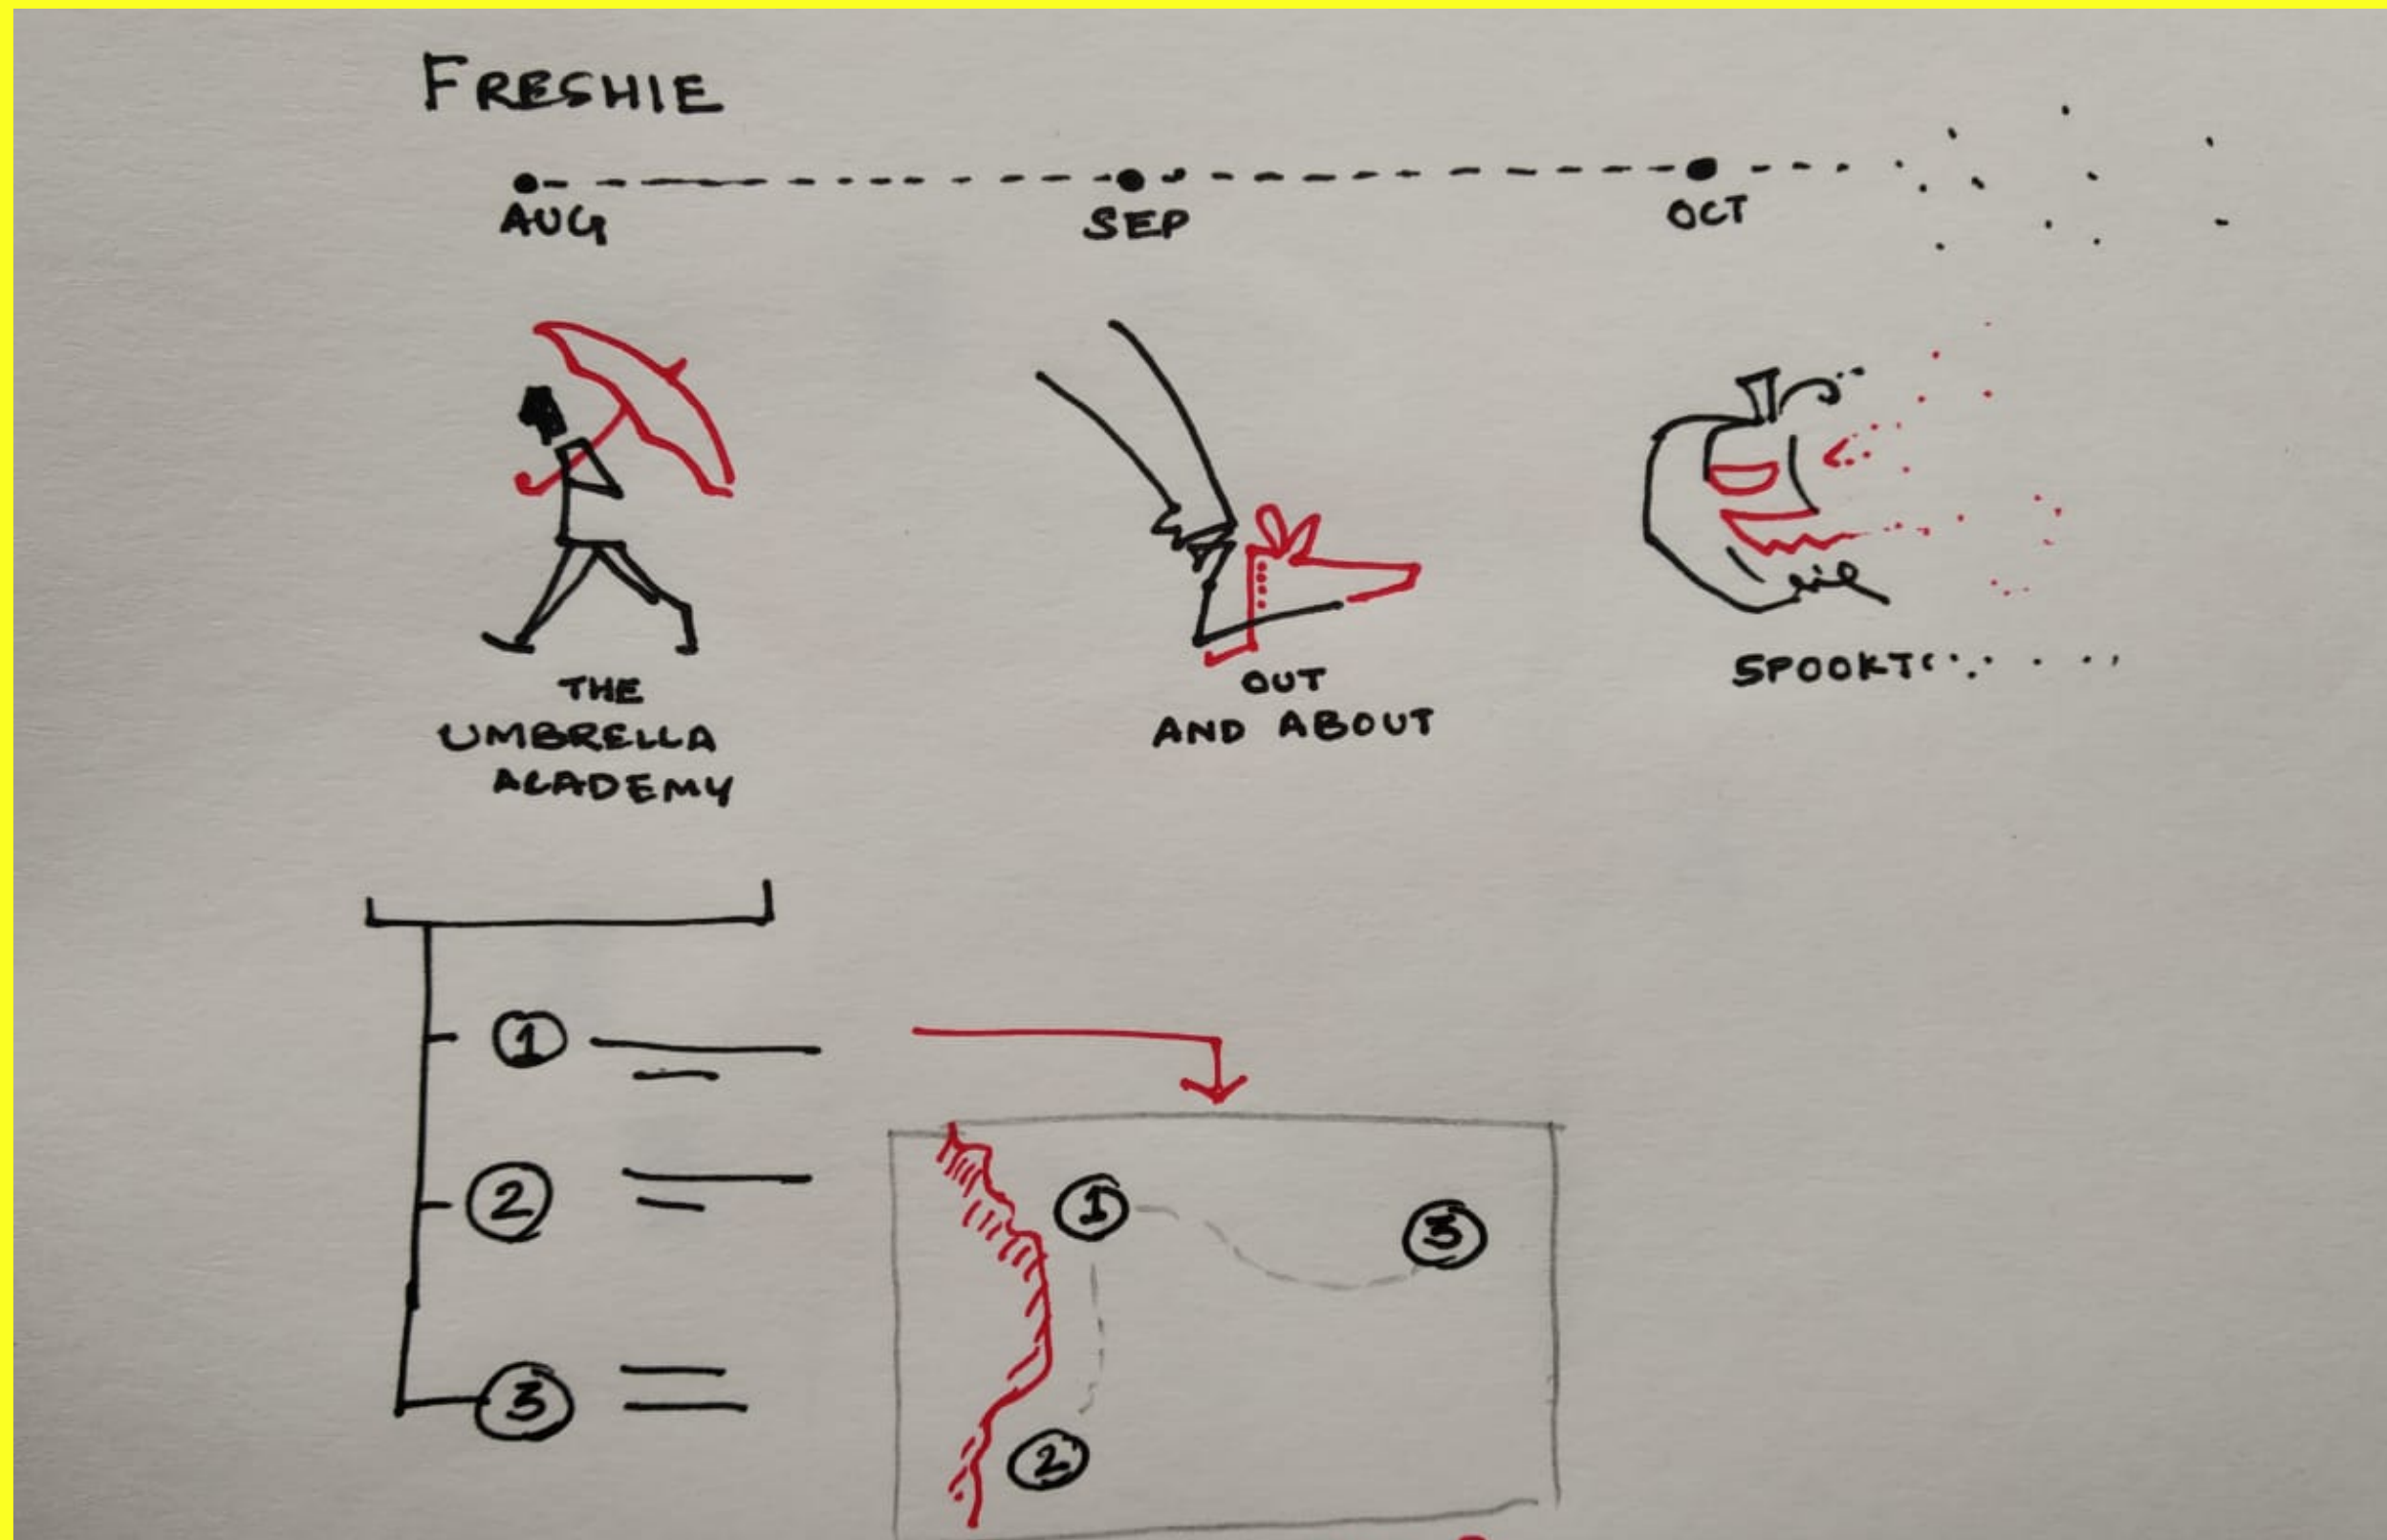 FRESHIE
AUG SEP OCT
THE
UMBRELLA
ACADEMY
OUT
AND ABOUT
SPOOKT
1
2
3
1
3
2